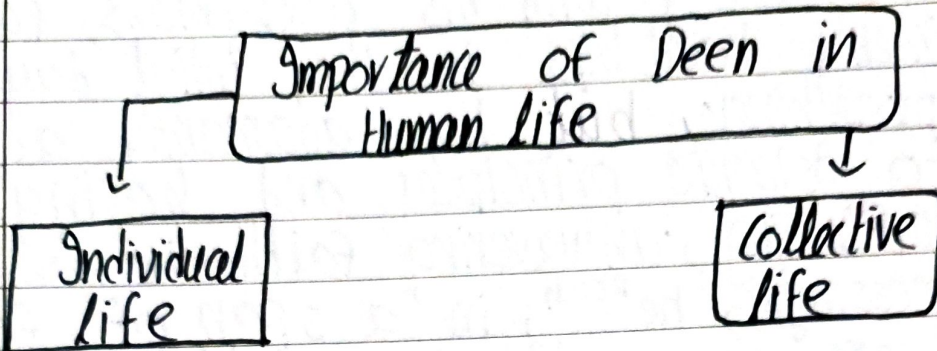 Importance of Deen in
Human life
Individual
life
Collective
life